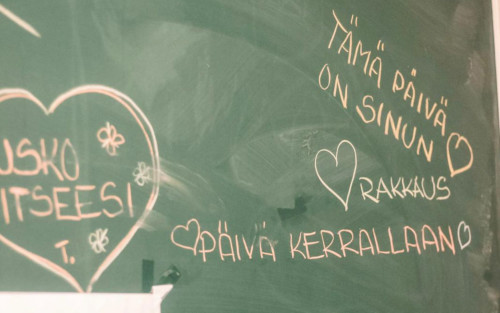 USKO
ITSEESI
T.
TÄMÄ PÄIVÄ
ON SINUN
RAKKAUS
PÄIVÄ KERRALLAAN